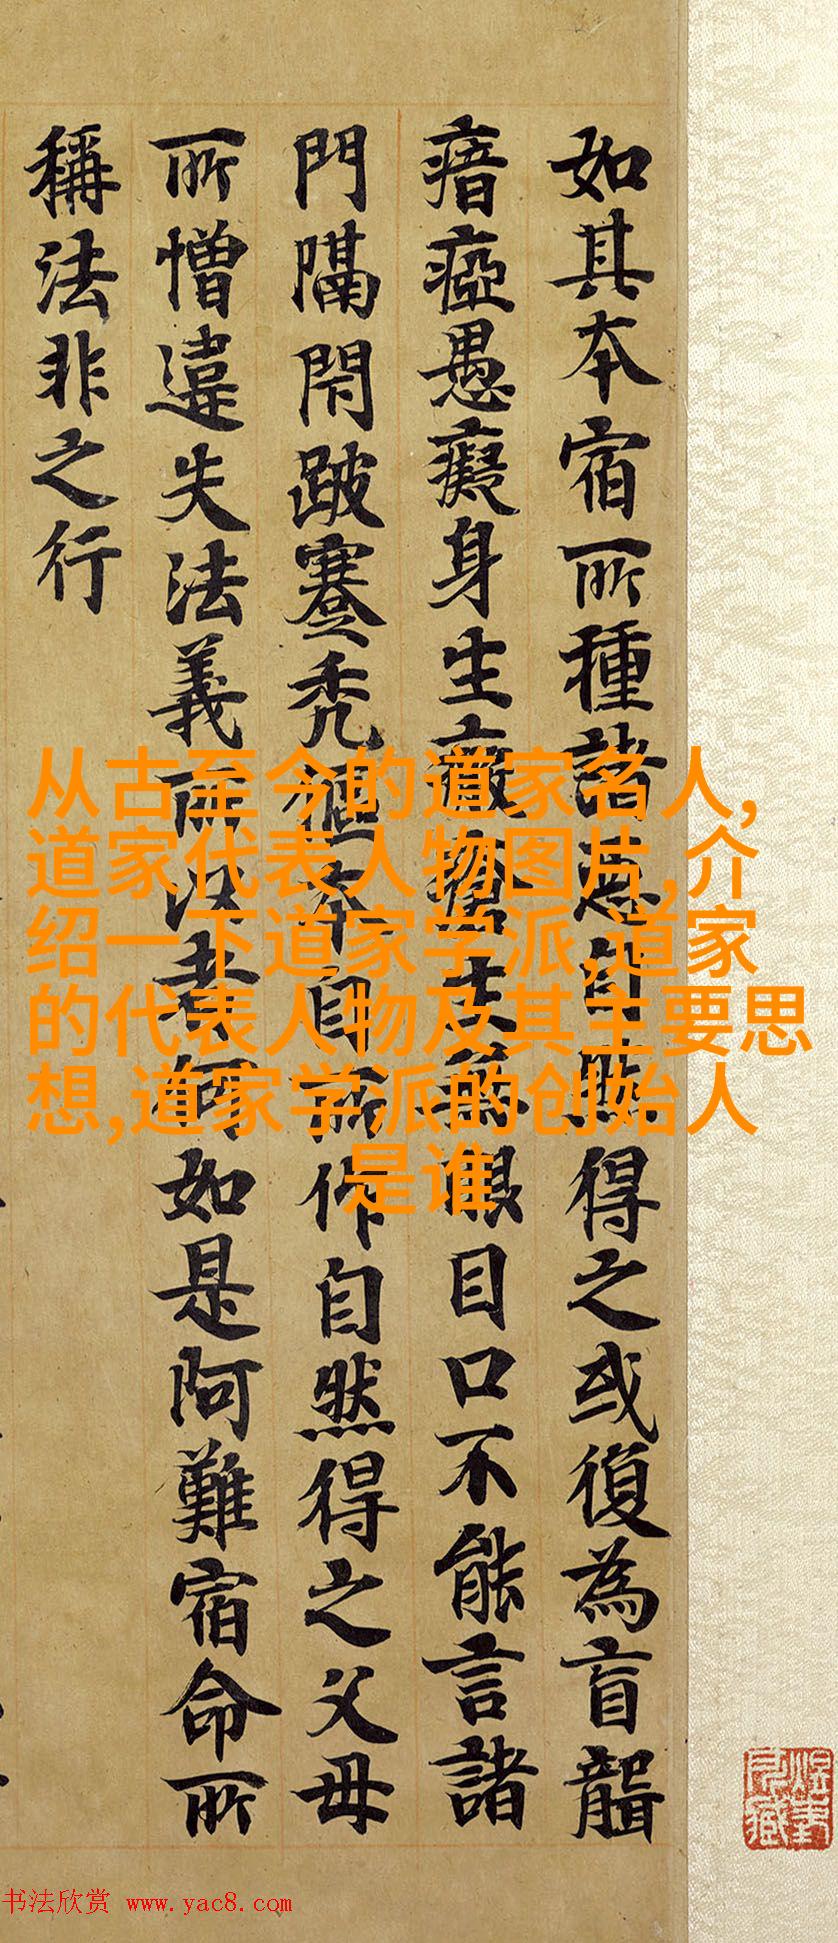 如其本宿所種諸惡自然得之或復為盲聾
瘖瘂愚癡身生瘡生無眼目口不能言諸
門隔閇跛蹇禿僂本自所作自然得之父母
所憎違失法義所以者何如是阿難宿命所
稱法非之行
从古至今的道家名人,
道家代表人物图片,介
绍一下道家学派,道家
的代表人物及其主要思
想,道家学派的创始人
是谁
书法欣赏 www.yac8.com